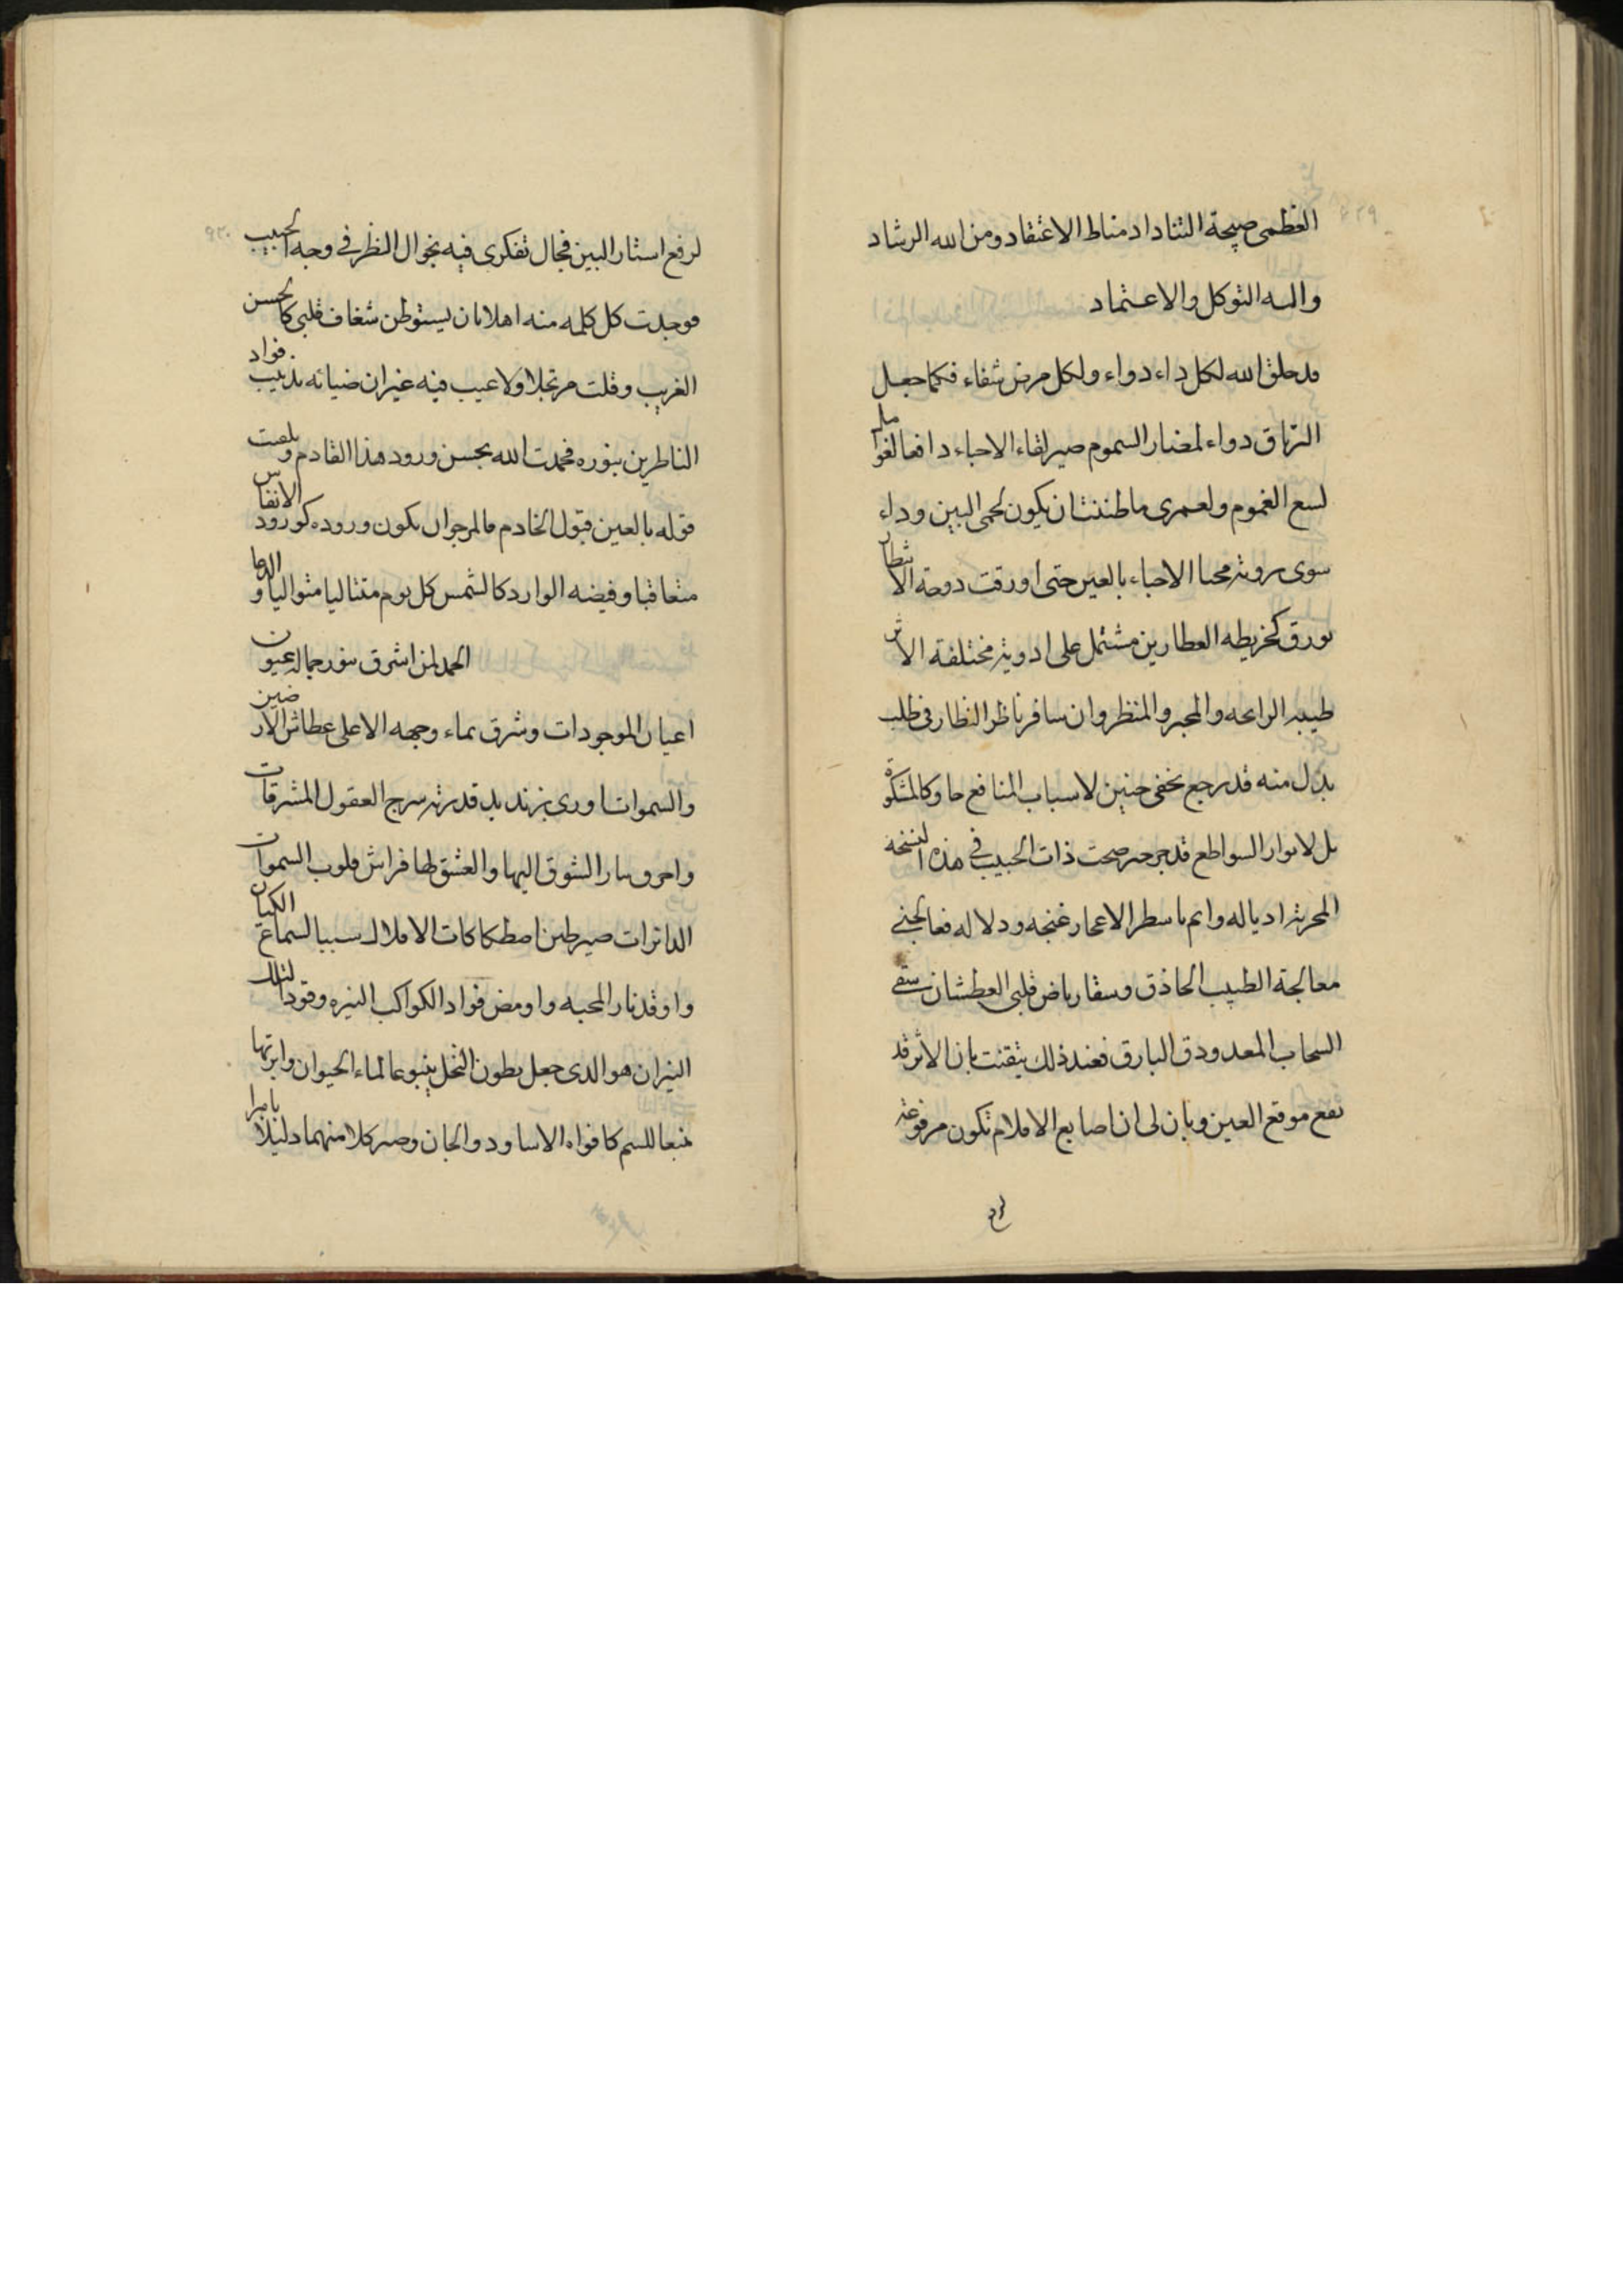 العظمى صيحة التناد اد مناط الاعتقاد ومن الله الرشاد
واليه التوكل والاعتماد
قد خلق الله لكل داء دواء ولكل مرض شفاء فكما جعل
الترياق دواء لمضار السموم صير لقاء الاحباء دافعا لغوا
لسع الغموم ولعمرى ما ظننت ان يكون لحمى البين وداء
سوى شربة محيا الاحباء بالعين حتى اورقت دوحة الا
بورق كخريطه العطارين مشتمل على ادوية مختلفة الاثر
طيبه الرايحه والمخبر والمنظر وان سافر ناظر النظار فى طلب
بدل منه قد رجع بخفى حنين لاسباب المنافع حاو كالمشكوة
بل لانوار السواطع قد صحت ذات الحبيب فى هذه النسخة
اد ياله وانم باسطر غنجه ودلاله فعالجنى
معالجة الطبيب الحاذق وسقا رياض قلبى العطشان سقى
السحاب المغدودق البارق فعند ذلك تيقنت بان الاثر قد
يقع موقع العين وبان لى ان اصابع الاقلام تكون مرفوعة
لرفع
٩٢٠
لرفع استار البين فجال تفكرى فيه بجوال النظر فى وجه الحبيب
فوجدت كل كلمه منه اهلا بان يستوطن شغاف قلبى كالحسن
الغريب وقلت مرتجلا ولا عيب فيه غير ان ضيائه يذيب فواد
الناظرين بنوره فحمدت الله بحسن ورود هذا القادم وتلقيت
قوله بالعين قبول الخادم فالمرجو ان يكون وروده كورود الانفاس
متعاقبا وفيضه الوارد كالشمس كل يوم متتاليا متواليا والدعا
الحمد لمن اشرق بنور جماله عيون
اعيان الموجودات وشرق بماء وجهه الاعلى عطاش الارضين
والسموات اورى بزند يد قدرته سرج العقول المشرقات
واحرق بنار الشوق اليها والعشق لها فراش قلوب السموات
الدائرات صير طنين اصطكاكات الافلاك سببا لسماع الكيان
واوقد نار المحبه واومض فواد الكواكب النيره وقودا لتلك
النيران هو الدى جعل بطون النحل ينبوعا لماء الحيوان وابرتها
منبعا للسم كافواه الاساود والجان وصير كلا منهما دليلا باهرا